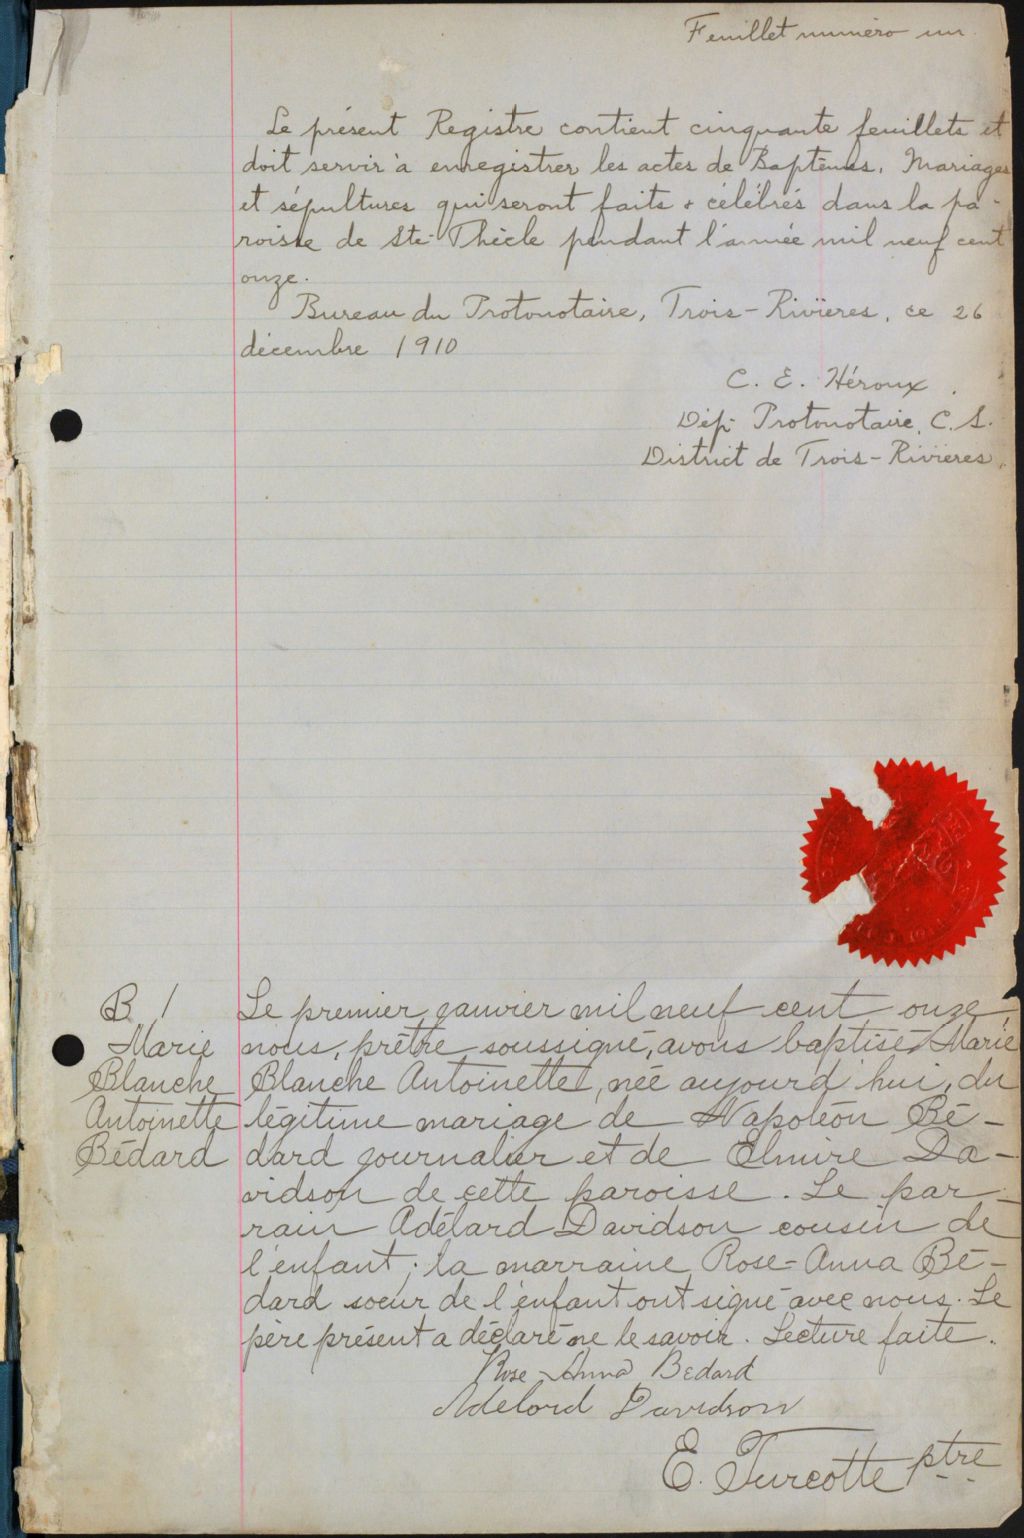 Feuillet numéro un.
Le présent Registre contient cinquante feuillets et
doit servir à enregistrer les actes de Baptêmes, Mariages
et sépultures qui seront faits & célébrés dans la pa-
roisse de Ste-Thècle pendant l'année mil neuf cent
onze.
Bureau du Protonotaire, Trois-Rivières, ce 26
décembre 1910
C. E. Héroux.
Dép. Protonotaire, C. S.
District de Trois-Rivières.
B. 1
Marie
Blanche
Antoinette
Bédard
Le premier janvier mil neuf cent onze
nous, prêtre soussigné, avons baptisé Marie
Blanche Antoinette, née aujourd'hui, du
légitime mariage de Napoléon Bé-
dard journalier et de Elmire Da-
vidson de cette paroisse. Le par-
rain Adélard Davidson cousin de
l'enfant; la marraine Rose-Anna Bé-
dard soeur de l'enfant ont signé avec nous. Le
père présent a déclaré ne le savoir. Lecture faite.
Rose-Anna Bedard
Adelord Davidson
E. Turcotte ptre